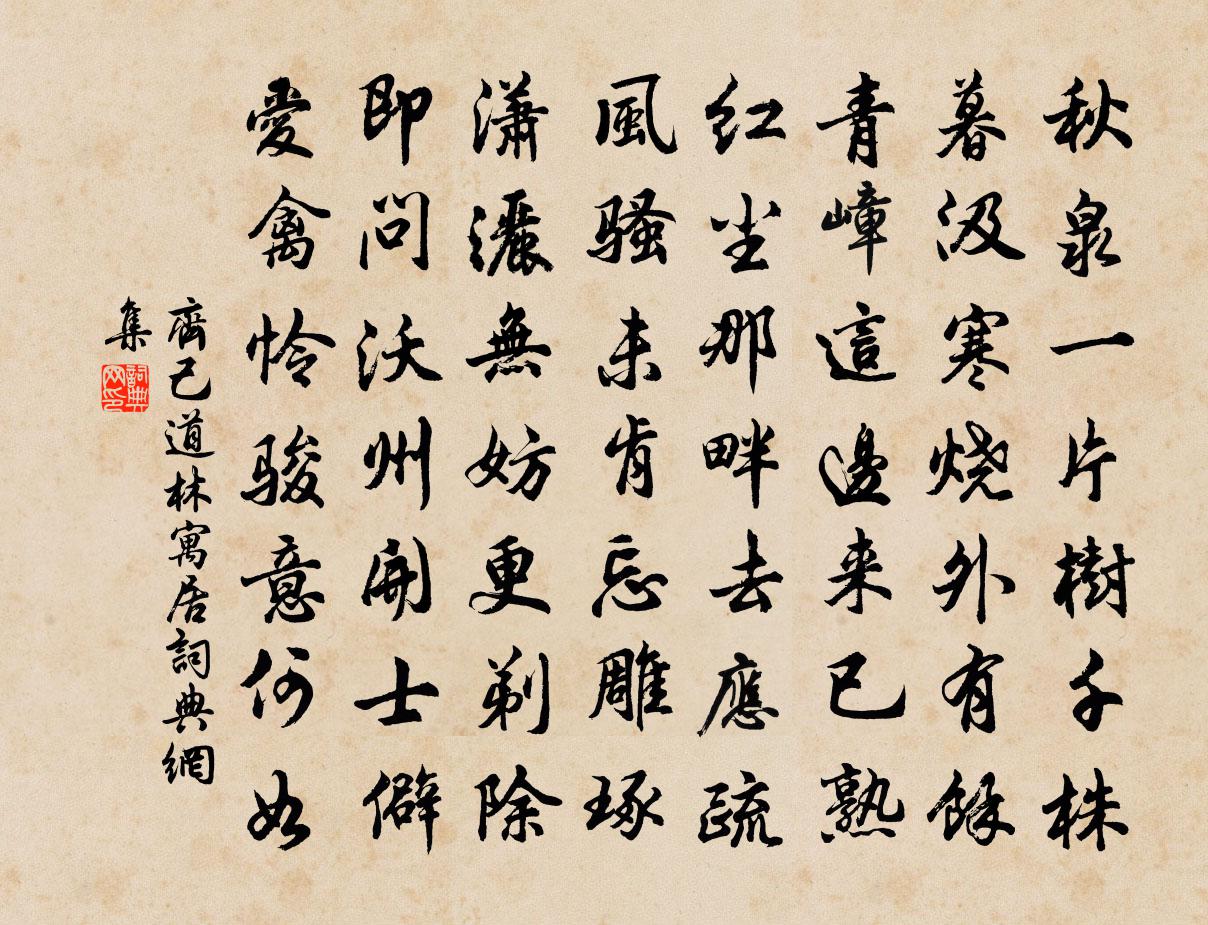 秋泉一片樹千株
暮汲寒烧外有餘
青嶂這邊来已熟
红尘那畔去應疏
風骚未肯忘雕琢
潇灑無妨更剃除
即問沃州開士僻
愛禽怜骏意何如
齊己道林寓居詞典網
集
詞典
网印